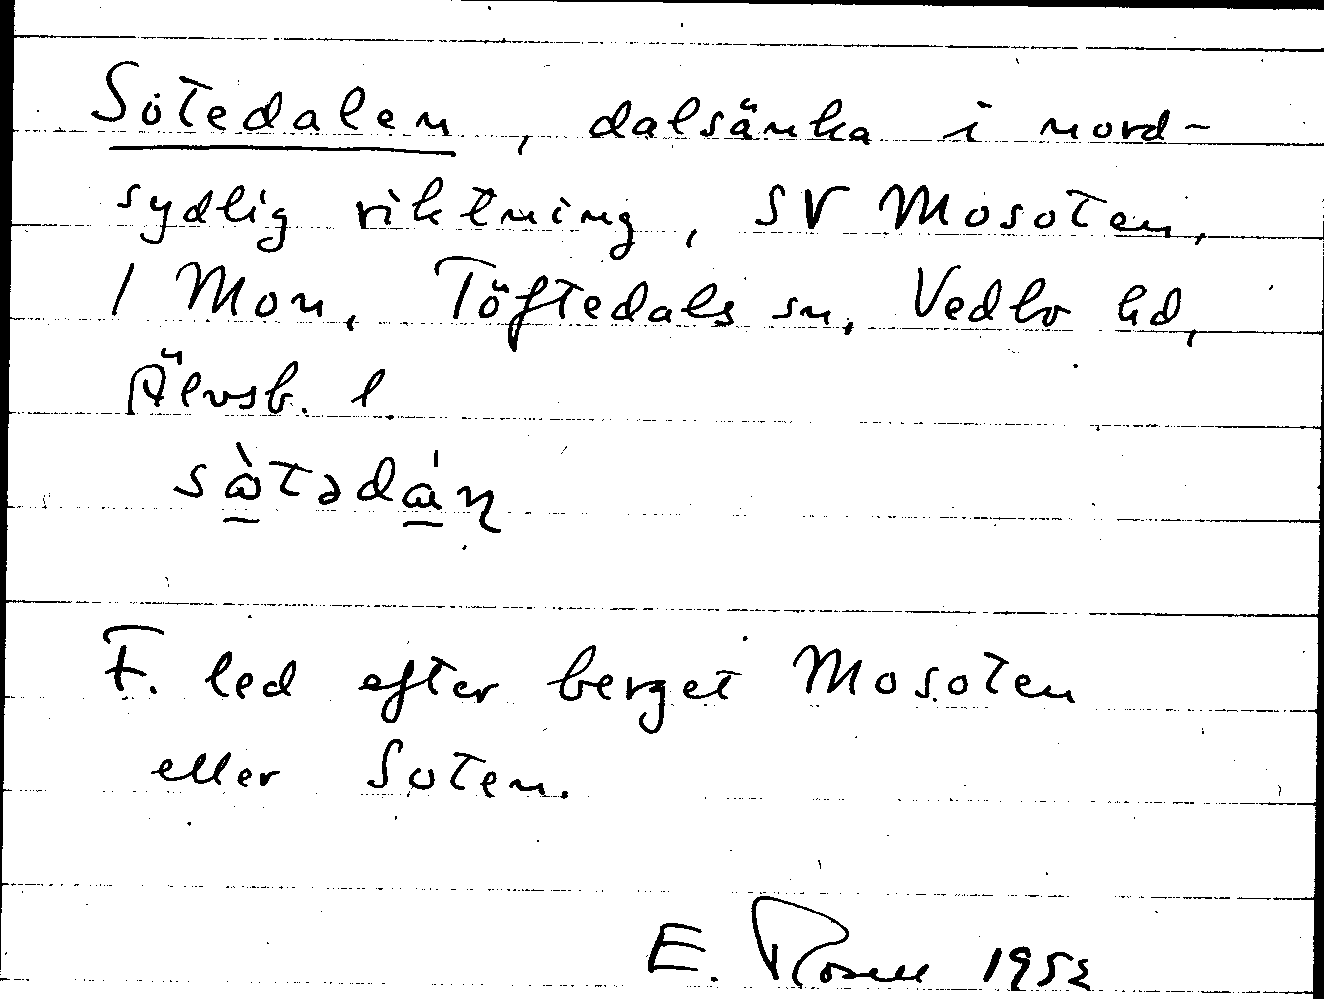 Sotedalen, dalsänka i nord-
sydlig riktning, SV Mosoten,
1 Mon, Töftedals sn, Vedbo hd,
Älvsb. l.
sὼ̱tədώ̱ɳ
F. led efter berget Mosoten
eller Soten.
E. Rosell 1952